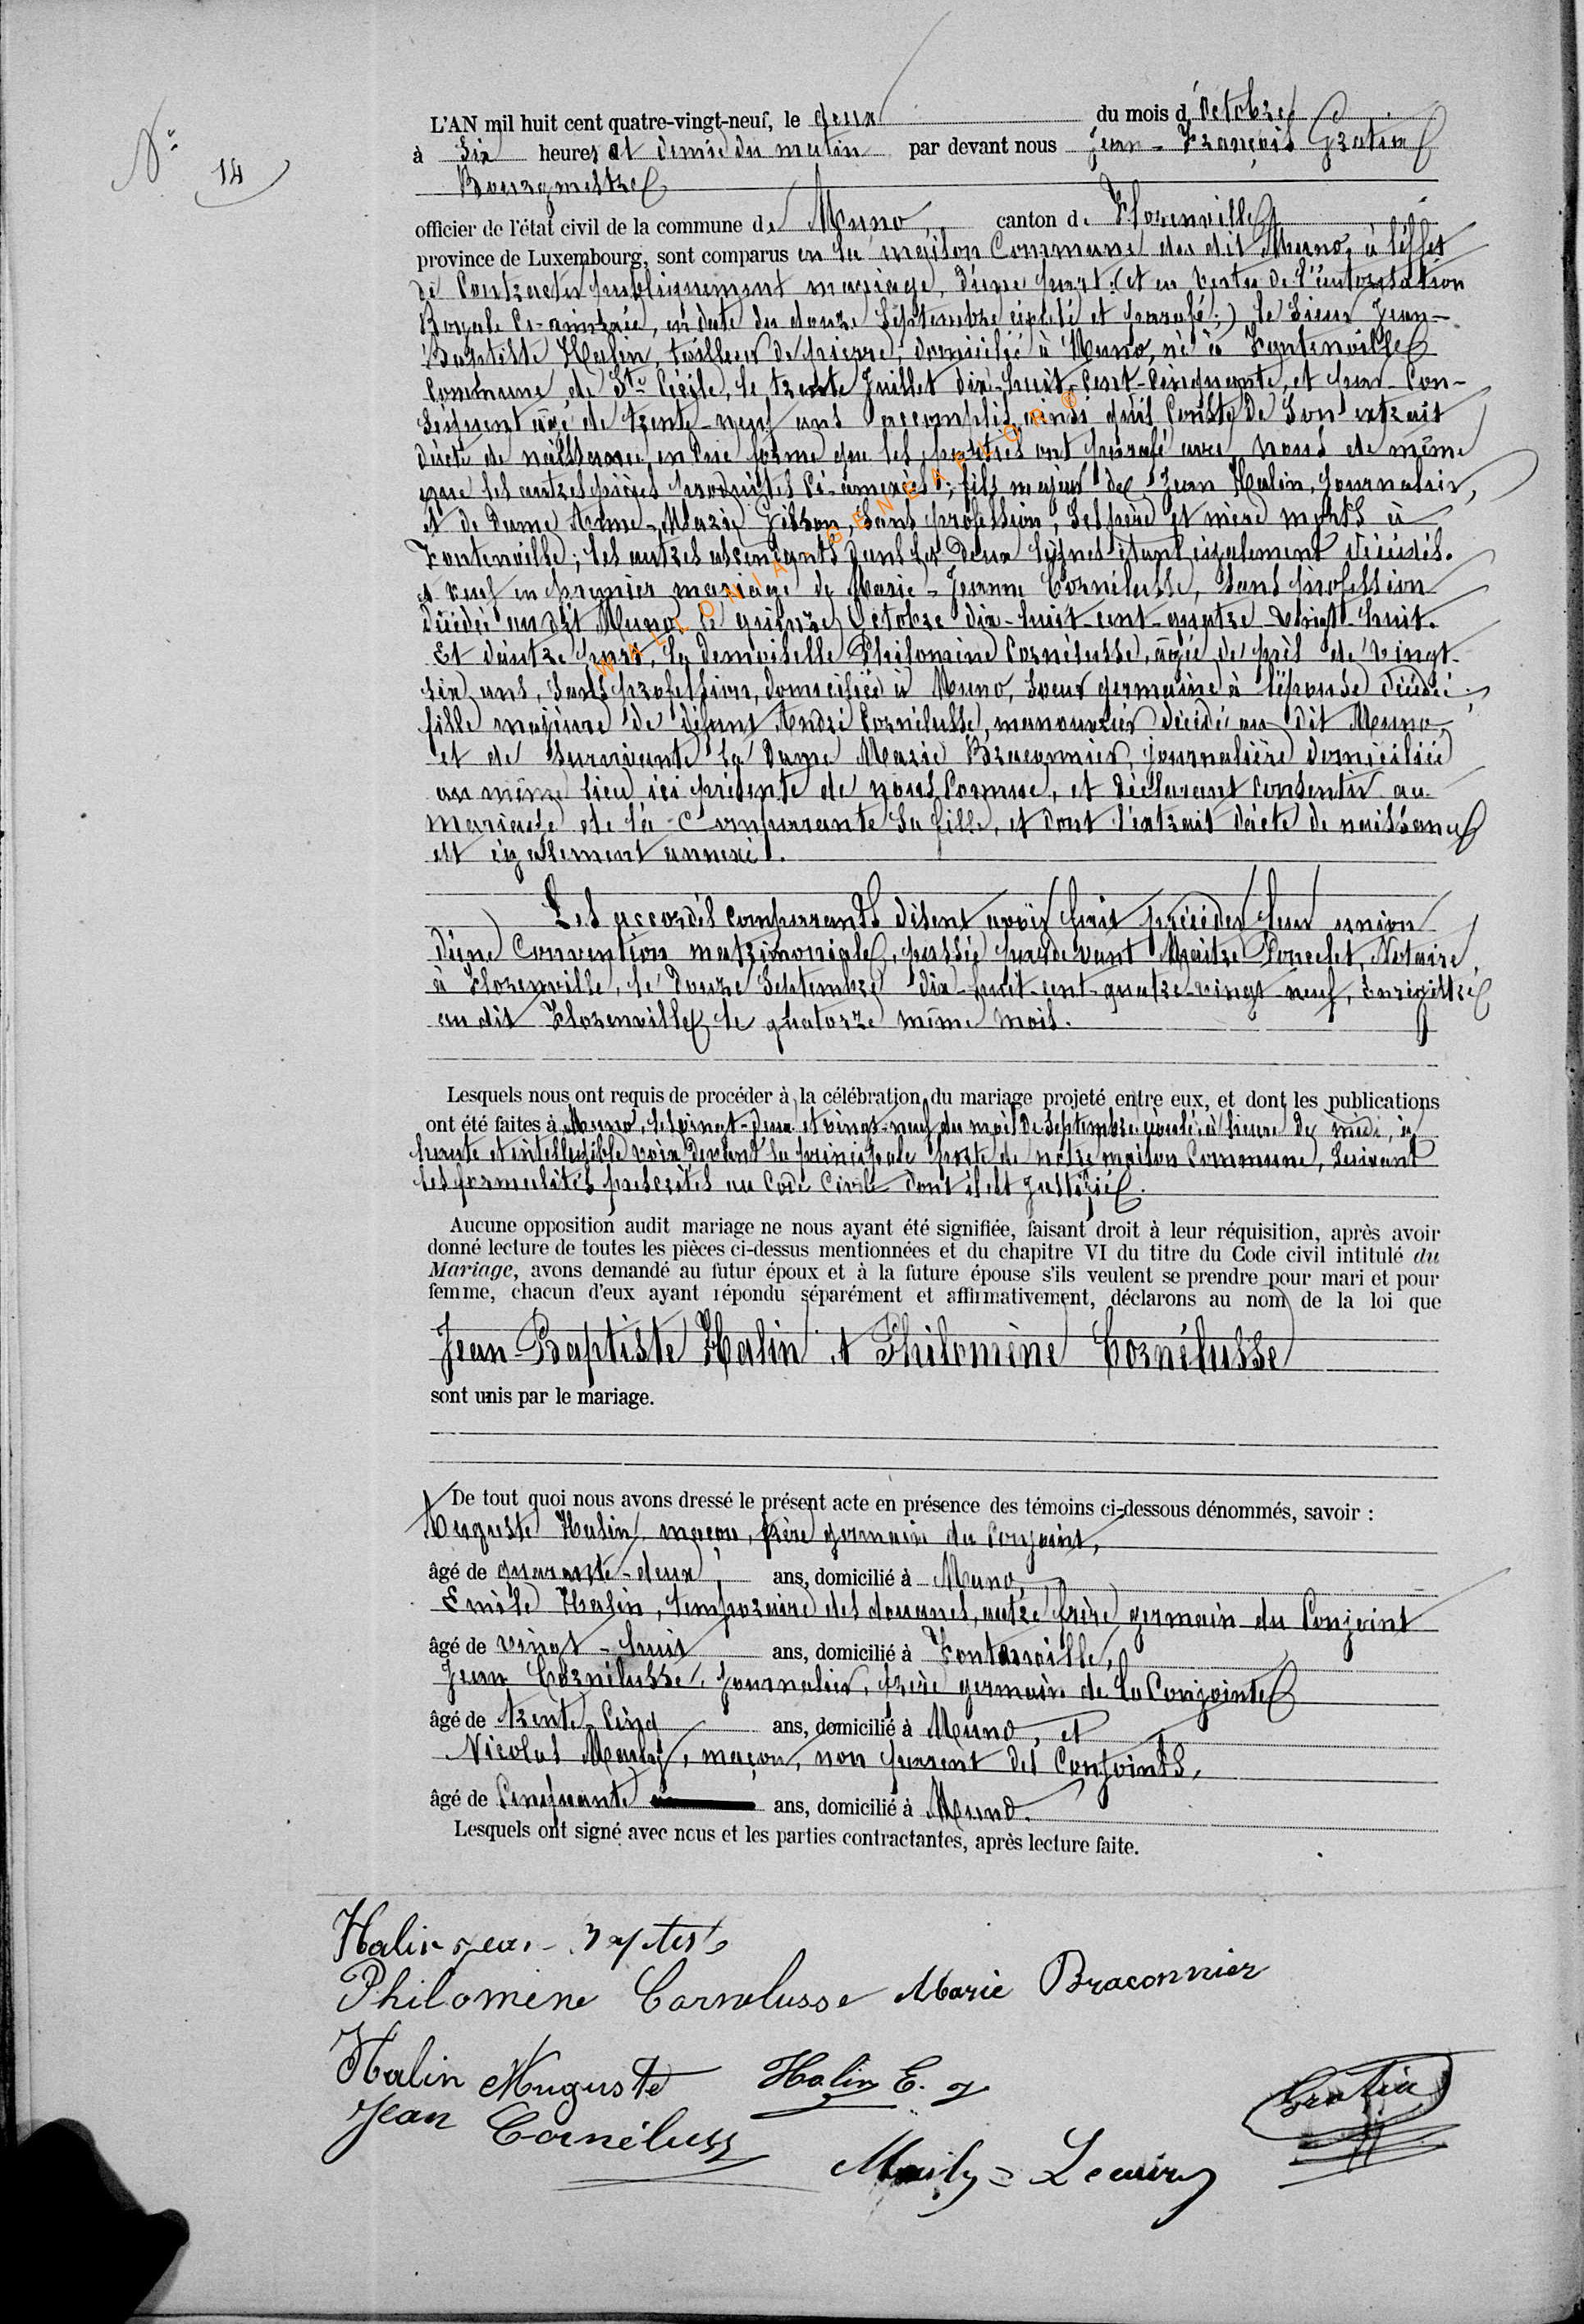 N° 14
L'AN mil huit cent quatre-vingt-neuf, le deux du mois d'Octobre
à Six heures et demie du matin par devant nous Jean-François Gratia
Bourgmestre
officier de l'état civil de la commune de Muno, canton de Florenville
province de Luxembourg, sont comparus en la maison Commune du dit Muno, à l'effet
de Contracter publiquement mariage, d'une part: (et en vertu de l'autorisation
Royale Ci-annexée, en date du douze Septembre et parafé:) le Sieur Jean-
Baptiste Halin, tailleur de pierre, domicilié à Muno, né à Fontenoille
Commune de Ste Cécile, le trente Juillet dix-huit-cent-cinquante, et par Con-
séquent âgé de trente-neuf ans accomplis, ainsi qu'il Conste de Son extrait
d'acte de naissance en due forme que les parties ont parafé avec nous de même
que les autres pièces produites Ci-annexées; fils majeur de Jean Halin, Journalier,
et de Dame Anne-Marie Gibson, Sans profession, Ses père et mère morts à
Fontenoille; les autres ascendants dans les deux lignes étant également décédés.
et veuf en premier mariage de Marie-Jeanne Cornélusse, Sans profession
décédée au dit Muno, le quinze Octobre dix-huit-cent-quatre-vingt-huit.
Et d'autre part, la demoiselle Philomène Cornélusse, âgée de près de vingt-
six ans, Sans profession, domiciliée à Muno, Sœur germaine à l'épouse décédée;
fille majeure de défunt André Cornélusse, manouvrier décédé au dit Muno,
et de survivante la Dame Marie Braconnier, journalière domiciliée
au même lieu ici présente de nous Connue, et déclarant Consentir au
mariage de la Comparante Sa fille, et dont l'extrait d'acte de naissance
est également annexé.
Les accordés comparants disent avoir fait précéder leur union
d'une Convention matrimoniale, passée pardevant Maître Poncelet, Notaire
à Florenville, le Douze Septembre dix-huit-cent-quatre-vingt-neuf, Enrégistrée
au dit Florenville le quatorze même mois.
Lesquels nous ont requis de procéder à la célébration du mariage projeté entre eux, et dont les publications
ont été faites à Muno, les vingt-deux et vingt-neuf du mois de Septembre écoulé à heure de midi, à
haute et intelligible voix devant la principale porte de notre maison Commune, Suivant
les formalités prescrites au Code Civil dont il est Justifié.
Aucune opposition audit mariage ne nous ayant été signifiée, faisant droit à leur réquisition, après avoir
donné lecture de toutes les pièces ci-dessus mentionnées et du chapitre VI du titre du Code civil intitulé du
Mariage, avons demandé au futur époux et à la future épouse s'ils veulent se prendre pour mari et pour
femme, chacun d'eux ayant répondu séparément et affirmativement, déclarons au nom de la loi que
Jean-Baptiste Halin et Philomène Cornélusse
sont unis par le mariage.
De tout quoi nous avons dressé le présent acte en présence des témoins ci-dessous dénommés, savoir :
Auguste Halin, maçon, frère germain du Conjoint,
âgé de quarante-deux ans, domicilié à Muno,
Emile Halin, temporaire des douanes, autre frère germain du Conjoint
âgé de vingt-huit ans, domicilié à Fontenoille,
Jean Cornélusse, Journalier, frère germain de la Conjointe
âgé de trente-Cinq ans, domicilié à Muno, et
Nicolas , maçon, non parent des Conjoints,
âgé de Cinquante ans, domicilié à Muno.
Lesquels ont signé avec nous et les parties contractantes, après lecture faite.
Halin Jean-Baptiste
Philomène Cornelusse Marie Braconnier
Halin Auguste Halin E. J
Gratia
Jean Cornéluss
WALLONIA-GENEAFLORE